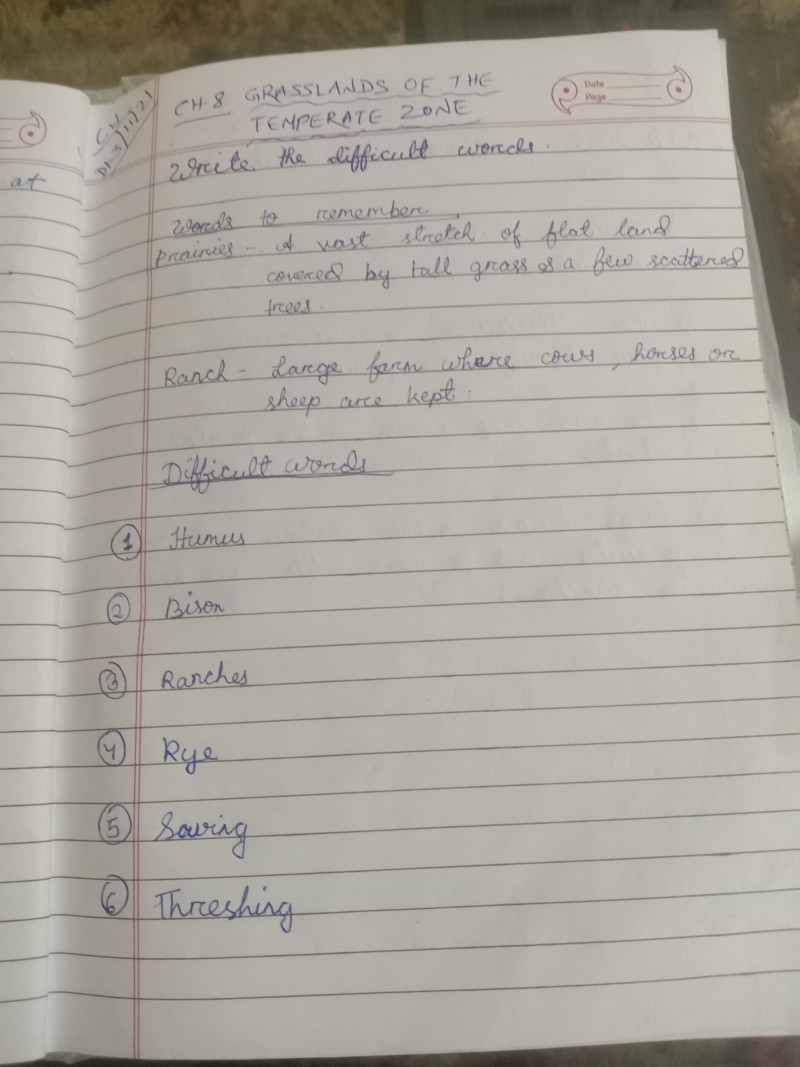 at
C.W
Dt-3/11/21
Date
Page
CH-8 GRASSLANDS OF THE
TEMPERATE ZONE
Write the difficult words.
Words to remember
prairies - A vast stretch of flat land
covered by tall grass & a few scattered
trees.
Ranch - Large farm where cows, horses or
sheep are kept.
Difficult words
1 Humus
2 Bison
3 Ranches
4 Rye
5 Sowing
6 Threshing